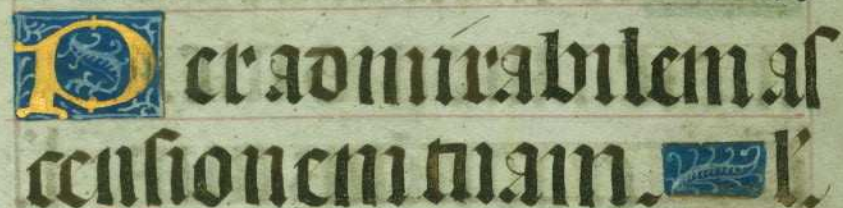 Per admirabilem aſ
cenſionem tuam. l'.